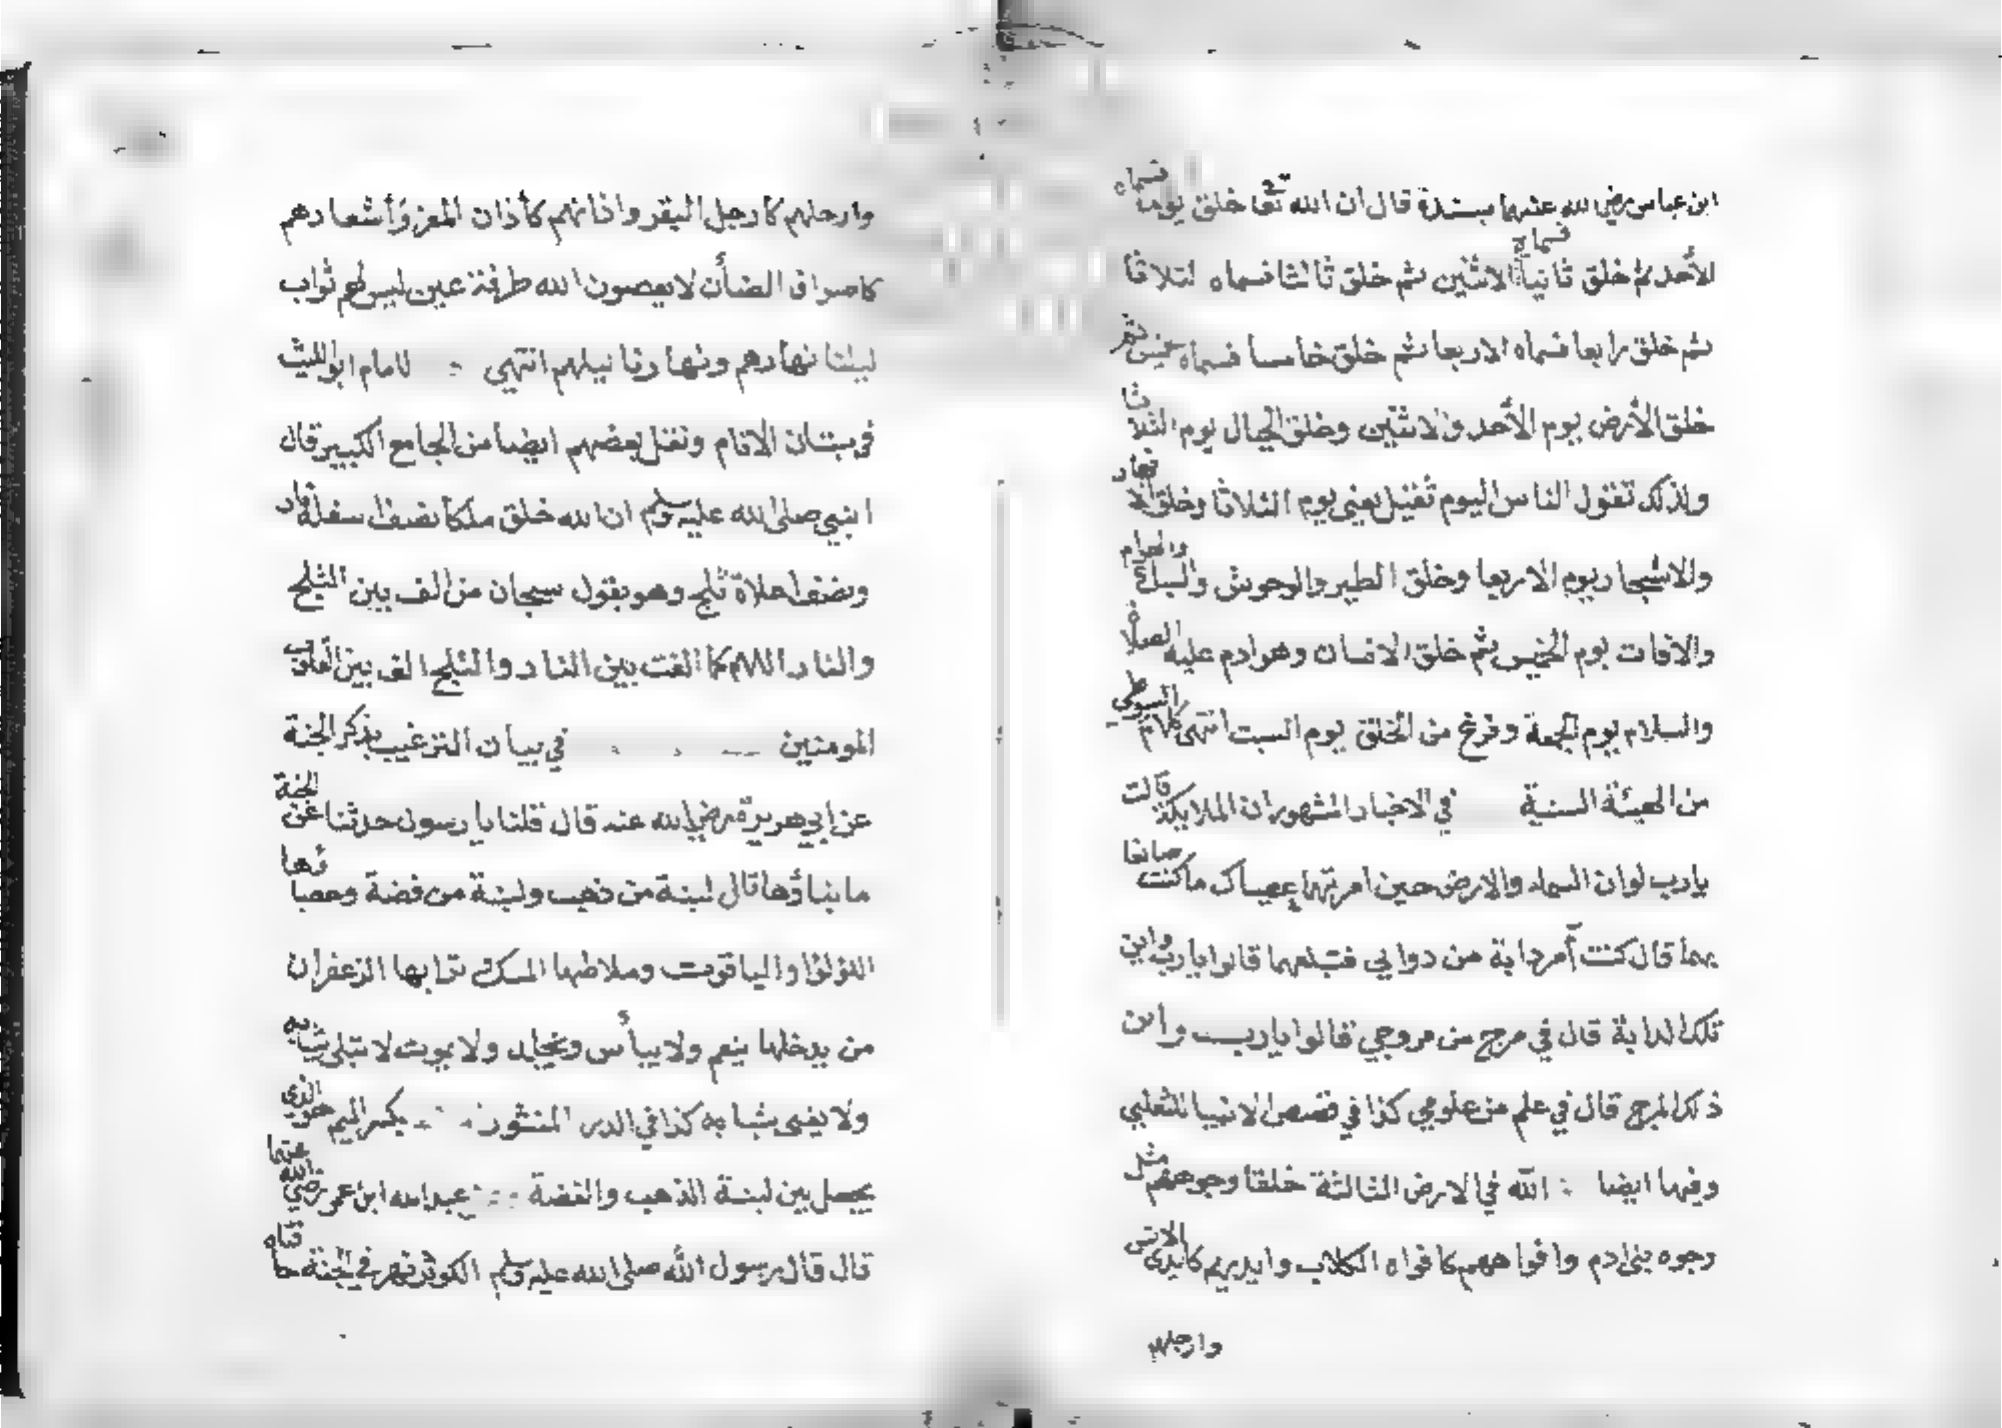 ابن عباس رضي الله عنهما بسنده قال ان الله تعالى خلق يوما فسماه
الأحد ثم خلق ثانيا فسماه الاثنين ثم خلق ثالثا فسماه الثلاثا
ثم خلق رابعا فسماه الاربعا ثم خلق خامسا فسماه خميس
خلق الأرض يوم الأحد والاثنين وخلق الجبال يوم الثلاثا
ولذلك تقول الناس اليوم ثقيل يعني يوم الثلاثا وخلق الانهار
والاشجار يوم الاربعا وخلق الطير والوحوش والسباع والهوام
والافات يوم الخميس ثم خلق الانسان وهو ادم عليه الصلاة
والسلام يوم الجمعة وفرغ من الخلق يوم السبت انتهى كلام السيوطي
من الهيئة السنية في الاخبار المشهور ان الملايكة قالت
يارب لو ان السماء والارض حين امرتهما عصياك ما كنت صانعا
بهما قال كنت آمر دابة من دوابي فتبلعهما قالوا يارب واين
تلك الدابة قال في مرج من مروجي قالوا يارب واين
ذلك المرج قال في علم من علومي كذا في قصص الانبيا للثعلبي
وفيها ايضا الله في الارض الثالثة خلقا وجوههم مثل
وجوه بني ادم وافواههم كافواه الكلاب وايديهم كايدي الانس
وارجلهم
وارجلهم كارجل البقر واذانهم كأذان المعز وأشعارهم
كاصواف الضأن لا يعصون الله طرفة عين ليس لهم ثواب
ليلنا نهارهم ونهارنا ليلهم انتهى للامام ابو الليث
في بستان الانام ونقل بعضهم ايضا من الجامع الكبير قال
النبي صلى الله عليه وسلم ان الله خلق ملكا نصف اسفله نار
ونصف اعلاه ثلج وهو يقول سبحان من الف بين الثلج
والنار اللهم كما الفت بين النار والثلج الف بين القلوب
المومنين في بيان الترغيب بذكر الجنة
عن ابي هريرة رضي الله عنه قال قلنا يا رسول حدثنا عن الجنة
ما بناؤها قال لبنة من ذهب ولبنة من فضة وحصباؤها
اللؤلؤ والياقوت وملاطها المسك ترابها الزعفران
من يدخلها ينعم ولا ييأس ويخلد ولا يموت لا تبلى ثيابه
ولا يفنى شبابه كذا في الدر المنثور بكسر الميم هو الذي
يجعل بين لبنة الذهب والفضة عبد الله ابن عمر رضي الله عنهما
قال قال رسول الله صلى الله عليه وسلم الكوثر نهر في الجنة حافتاه